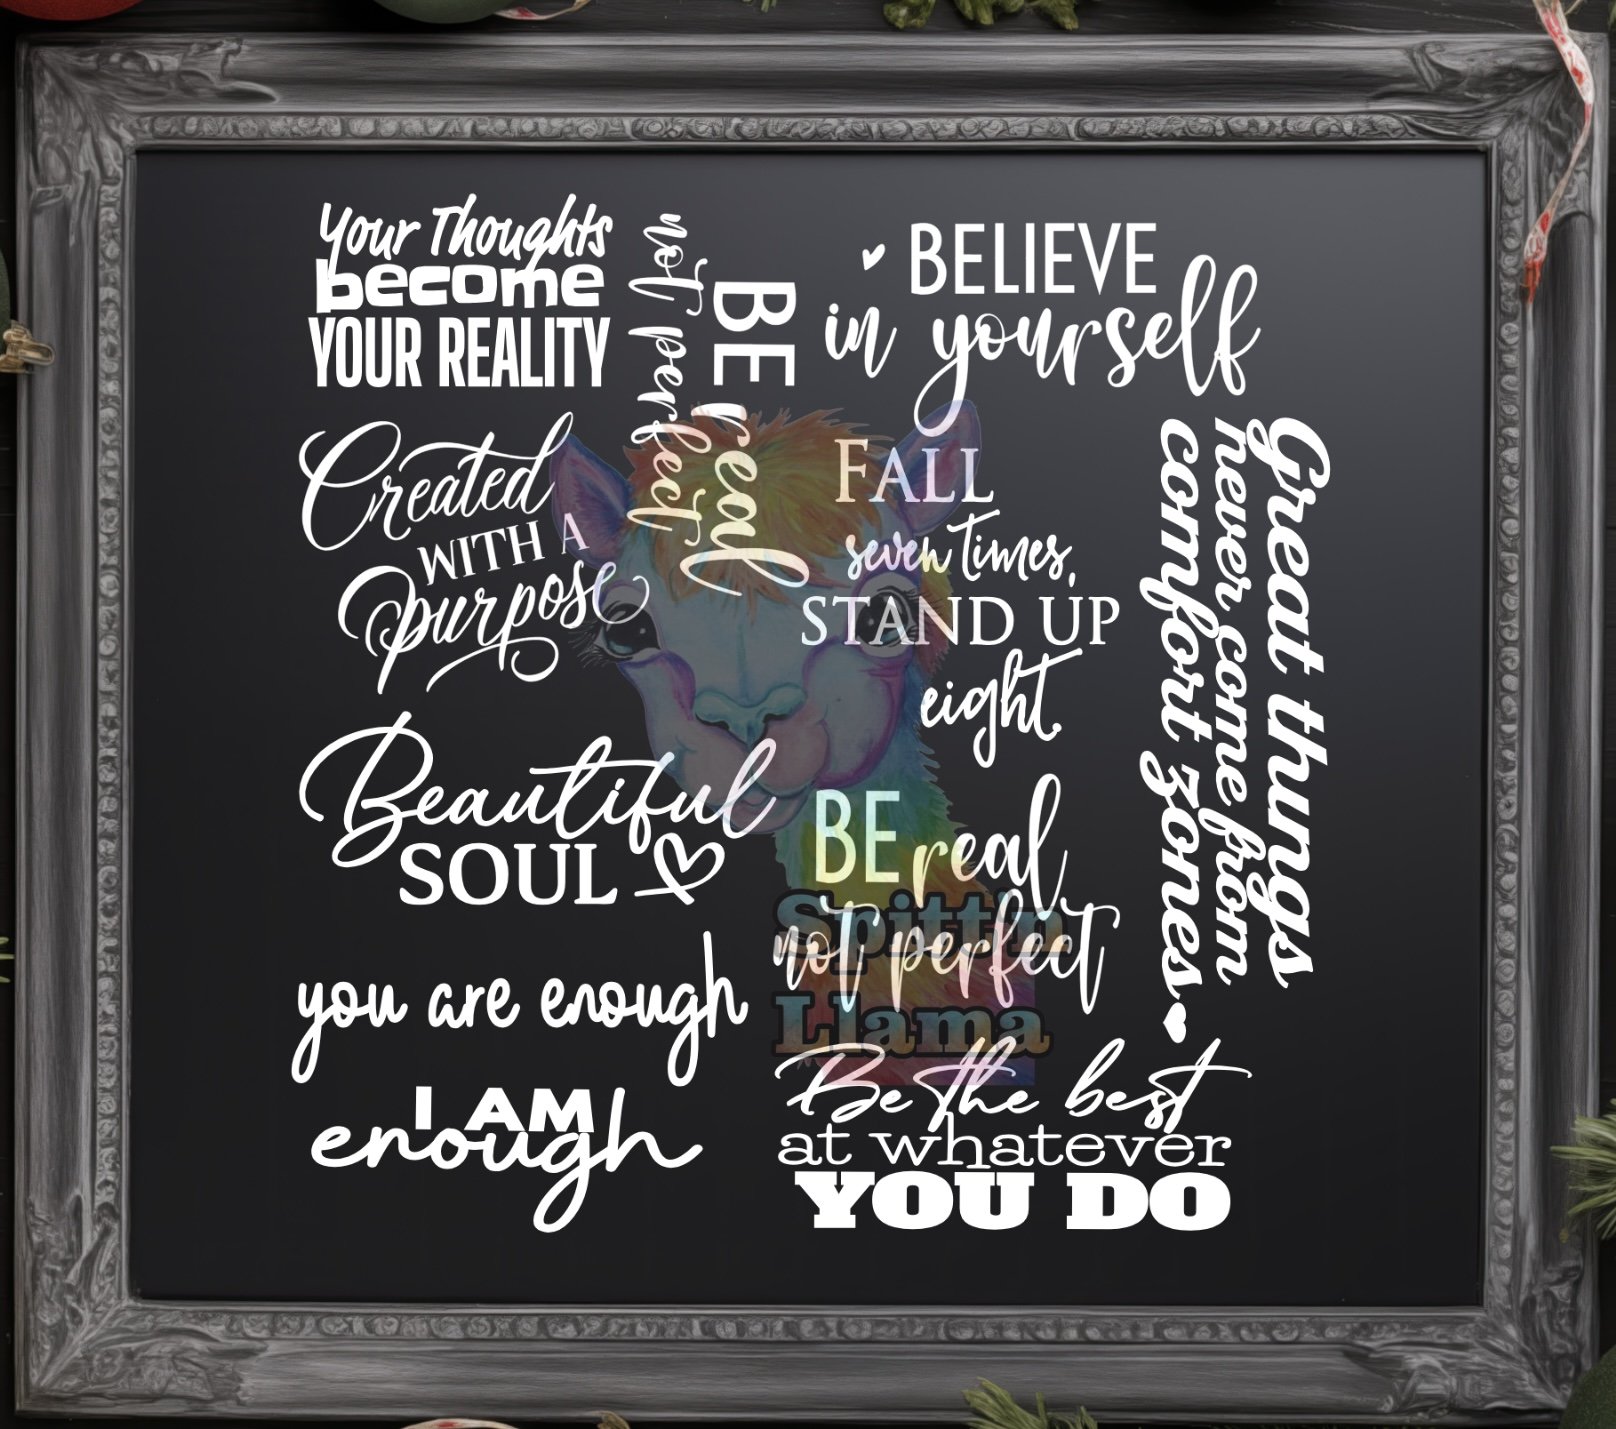 Your Thoughts
become
YOUR REALITY
BE real
not perfect
BELIEVE
in yourself
Created
WITH A
purpose
FALL
seven times,
STAND UP
eight.
Great things
never come from
comfort zones
Beautiful
SOUL
BE real
not perfect
Spitt'n
Llama
you are enough
I AM
enough
Be the best
at whatever
YOU DO